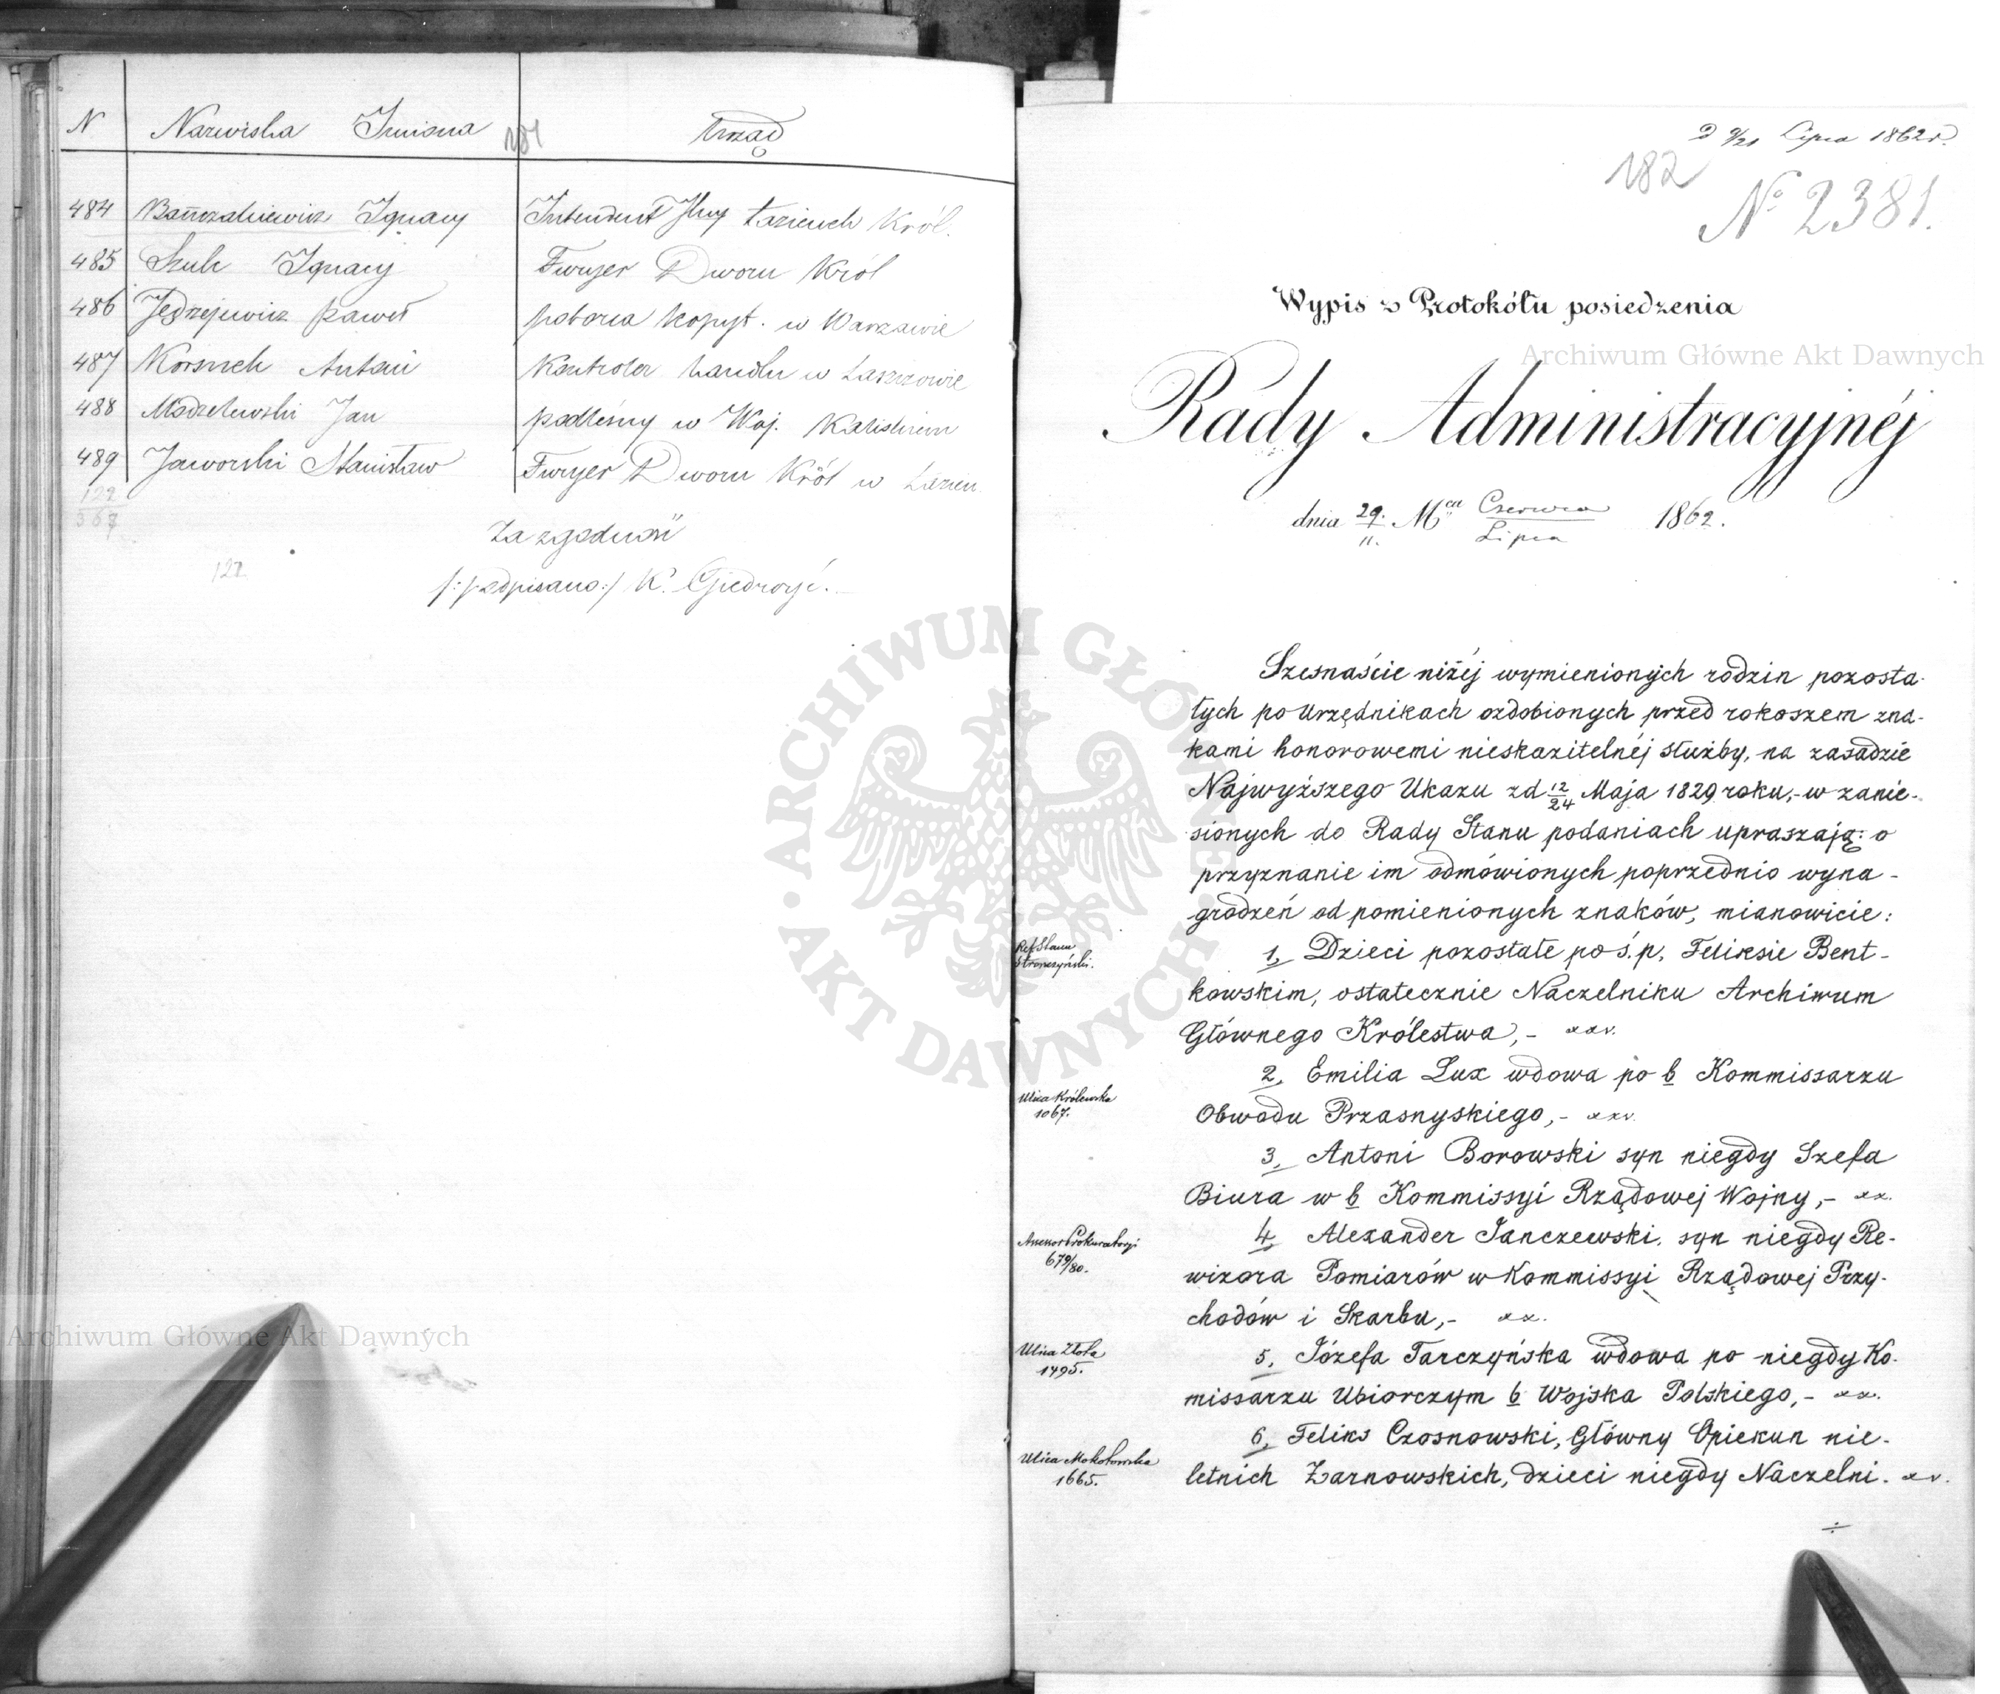 N Nazwiska Imiona Urząd
181
484 Bańczakiewicz Ignacy Intendent Łazienek Król.
485 Szulc Ignacy Furyer Dworu Król
486 Jędrzejewicz Paweł poborca kopyt. w Warszawie
487 Antoni Kontroler handlu w Łaszczowie
488 Modzelewski Jan podleśny w Woj. Kaliskiem
489 Jaworski Stanisław Furyer Dworu Król w Łazien.
122
367
Za zgodność
/:podpisano:/ K. Giedroyć.
122
D 9/21 Lipca 1862 r.
182
No 2381.
Wypis z Protokółu posiedzenia
Rady Administracyjnéj
dnia 29./11. Mca Czerwca/Lipca 1862.
Szesnaście niżéj wymienionych rodzin pozosta-
łych po Urzędnikach ozdobionych przed rokoszem zna-
kami honorowemi nieskazitelnéj służby, na zasadzie
Najwyższego Ukazu zd 12/24 Maja 1829 roku,- w zanie-
sionych do Rady Stanu podaniach upraszają: o
przyznanie im odmówionych poprzednio wyna-
grodzeń od pomienionych znaków, mianowicie:
Ref. Stanu
Stronczyński.
1, Dzieci pozostałe po ś.p. Feliksie Bent-
kowskim, ostatecznie Naczelniku Archiwum
Głównego Królestwa,-
Ulica Królewska
1067.
2, Emilia Lux wdowa po b Kommissarzu
Obwodu Przasnyskiego,-
3, Antoni Borowski syn niegdy Szefa
Biura w b Kommissyi Rządowej Wojny,-
Assessor Prokuratoryi
679/80.
4, Alexander Janczewski, syn niegdy Re-
wizora Pomiarów w Kommissyi Rządowej Przy-
chodów i Skarbu,-
Ulica Złota
1495.
5, Józefa Tarczyńska wdowa po niegdy Ko-
missarzu Ubiorczym b Wojska Polskiego,-
Ulica Mokotowska
1665.
6, Feliks Czosnowski, Główny Opiekun nie-
letnich Żarnowskich, dzieci niegdy Naczelni-
Archiwum Główne Akt Dawnych
Archiwum Główne Akt Dawnych
ARCHIWUM GŁÓWNE AKT DAWNYCH